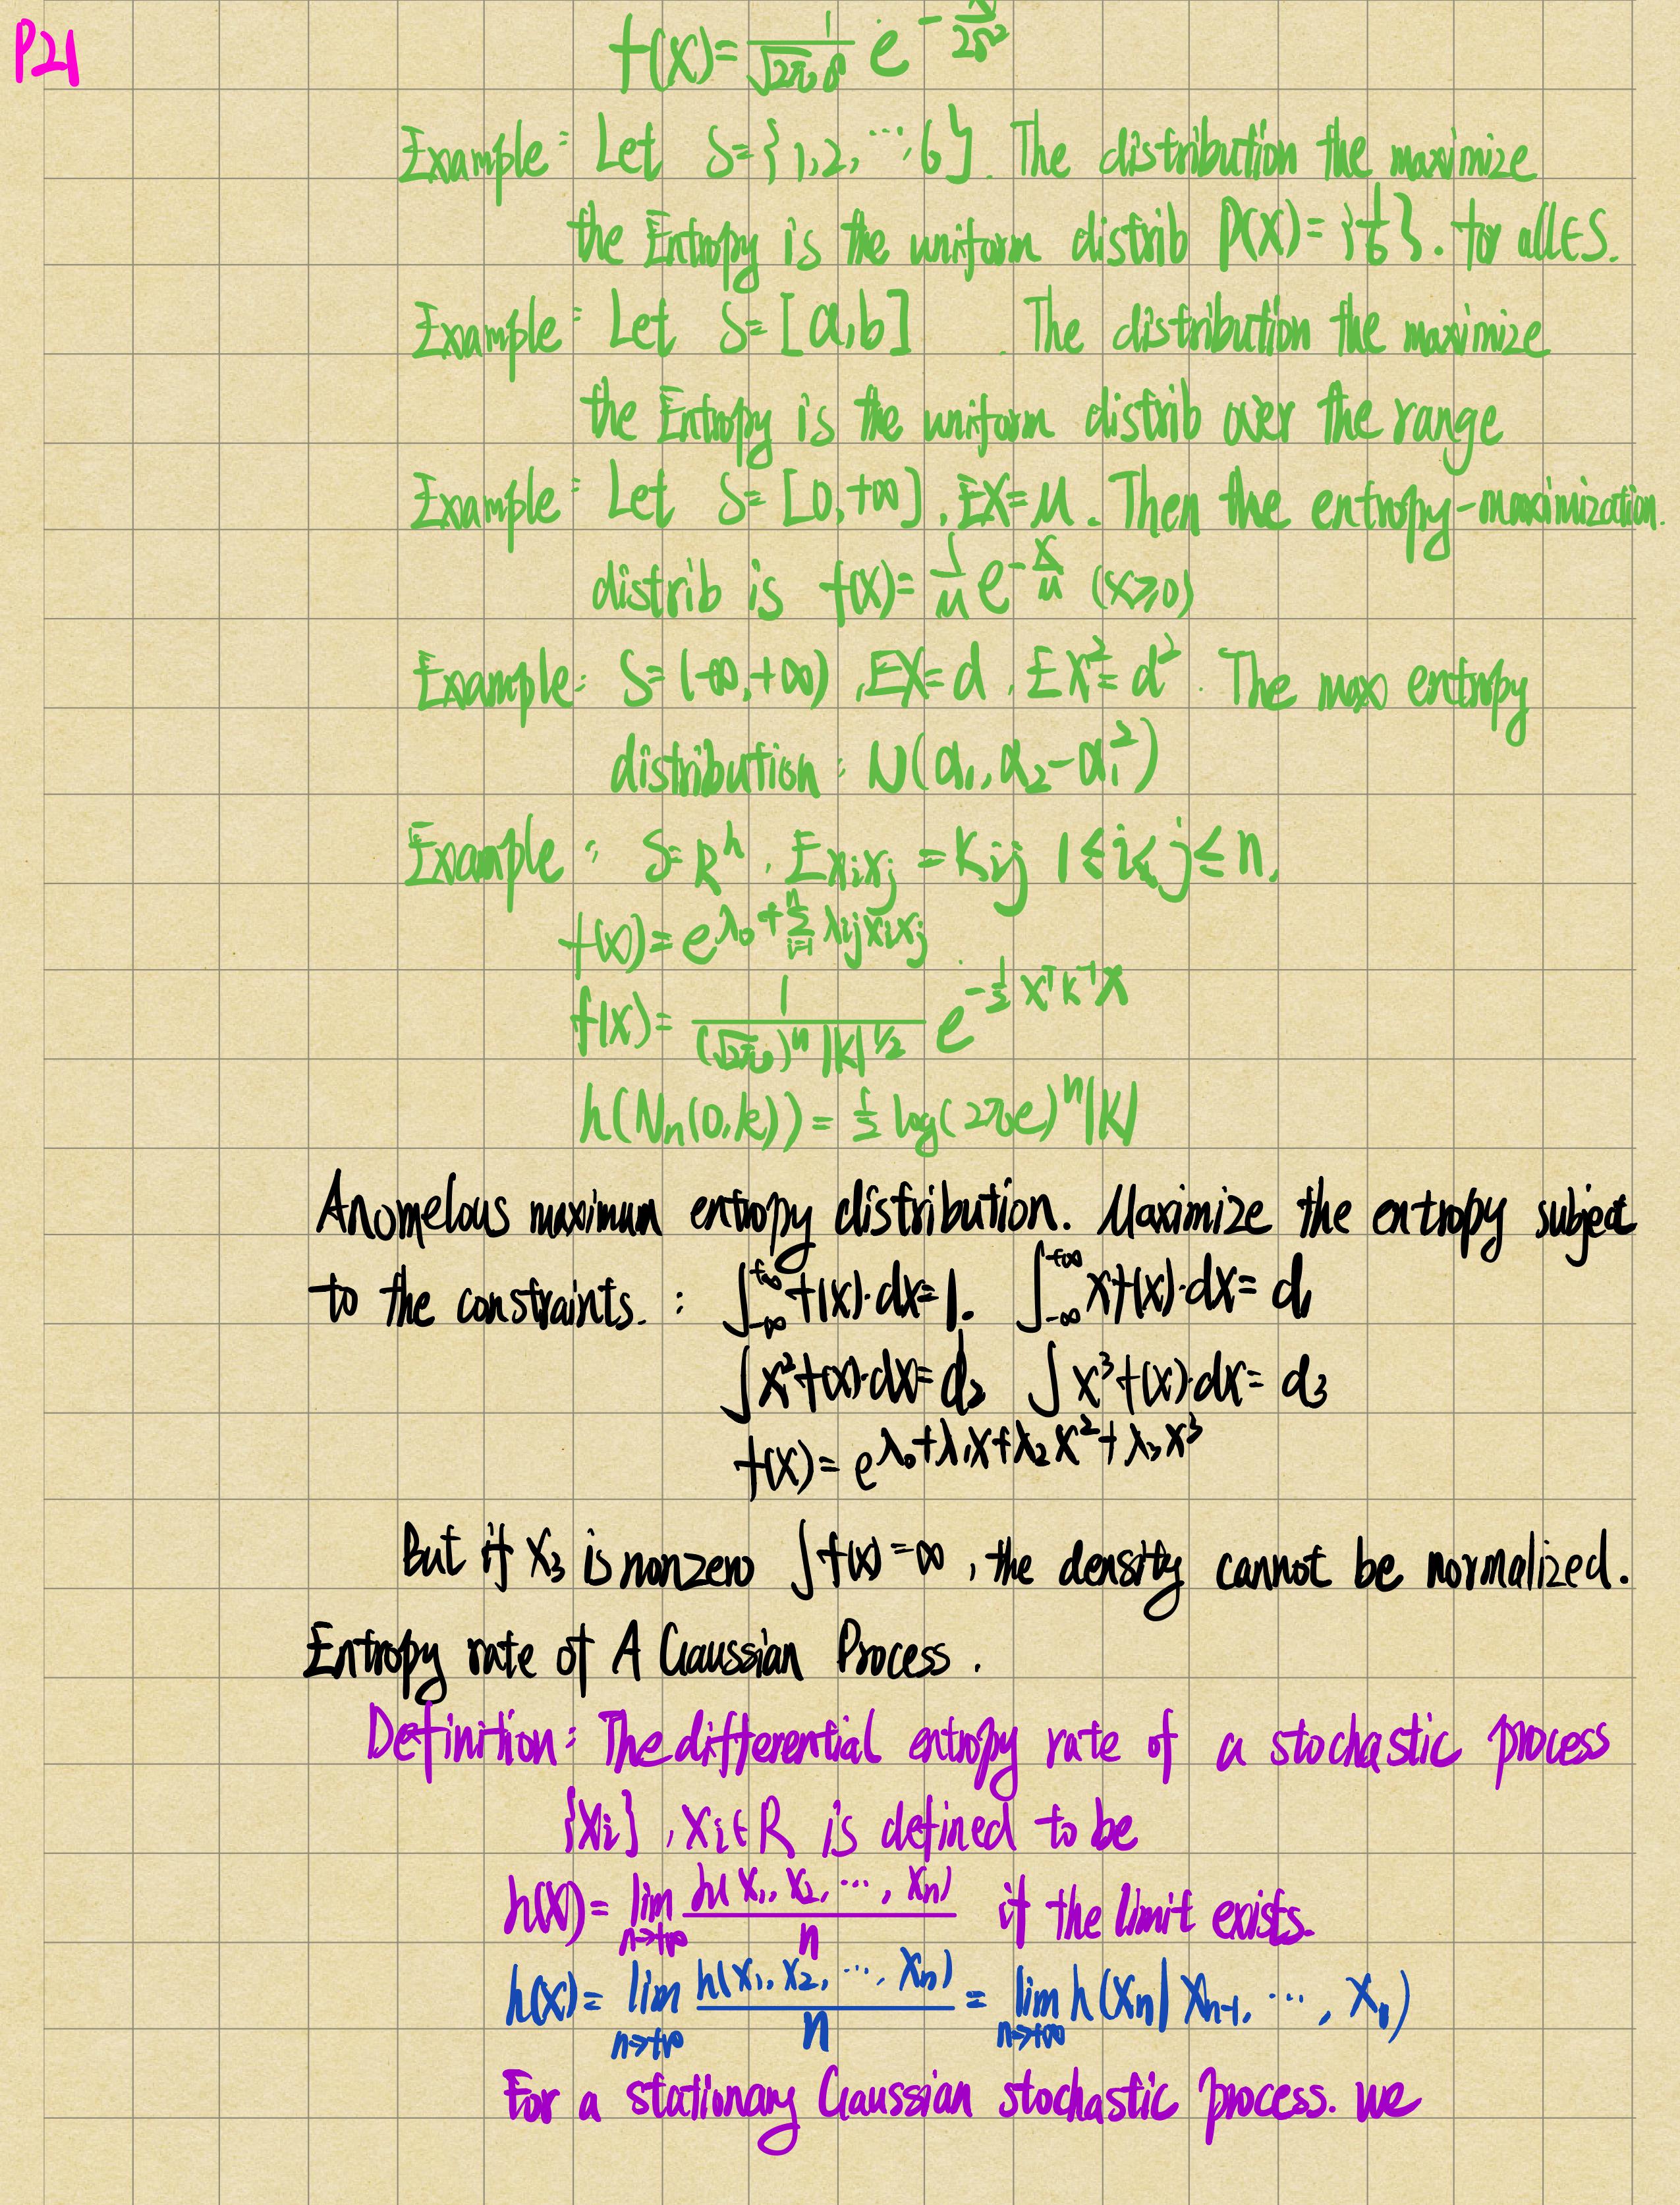 P21
f(x)=\frac{1}{\sqrt{2π}σ} e^{-\frac{x}{2σ^2}}
Example: Let S={1,2,⋯,6}. The distribution the maximize
the Entropy is the uniform distrib P(X)={\frac{1}{6}}. for all∈S.
Example: Let S=[a,b]. The distribution the maximize
the Entropy is the uniform distrib over the range
Example: Let S=[0,+∞], EX=μ. Then the entropy-maximization.
distrib is f(x)=\frac{1}{μ}e^{-\frac{x}{μ}} (x≥0)
Example: S=(-∞,+∞), EX=α, EX^2=α^2. The max entropy
distribution: N(α_1, α_2-α_1^2)
Example: S=R^n, Ex_ix_j=K_{ij} 1≤i≤j≤n,
f(x)=e^{λ_0+\sum_{i=1}^{n}λ_{ij}x_ix_j}
f(x)=\frac{1}{(\sqrt{2π})^n|K|^{1/2}} e^{-\frac{1}{2}X^TK^{-1}X}
h(N_n(0,k))=\frac{1}{2}log(2πe)^n|K|
Anomelous maximum entropy distribution. Maximize the entropy subject
to the constraints.: ∫_{-∞}^{+∞}f(x)·dx=1. ∫_{-∞}^{+∞}xf(x)·dx=α_1
∫x^2f(x)·dx=α_2 ∫x^3f(x)·dx=α_3
f(x)=e^{λ_0+λ_1x+λ_2x^2+λ_3x^3}
But if X_3 is nonzero ∫f(x)=∞, the density cannot be normalized.
Entropy rate of A Gaussian Process.
Definition: The differential entropy rate of a stochastic process
{X_i}, X_i∈R is defined to be
h(X)=\lim_{n→+∞}\frac{h(X_1,X_2,⋯,X_n)}{n} if the limit exists.
h(X)=\lim_{n→+∞}\frac{h(X_1,X_2,⋯,X_n)}{n}=\lim_{n→+∞}h(X_n|X_{n-1},⋯,X_1)
For a stationary Gaussian stochastic process. we